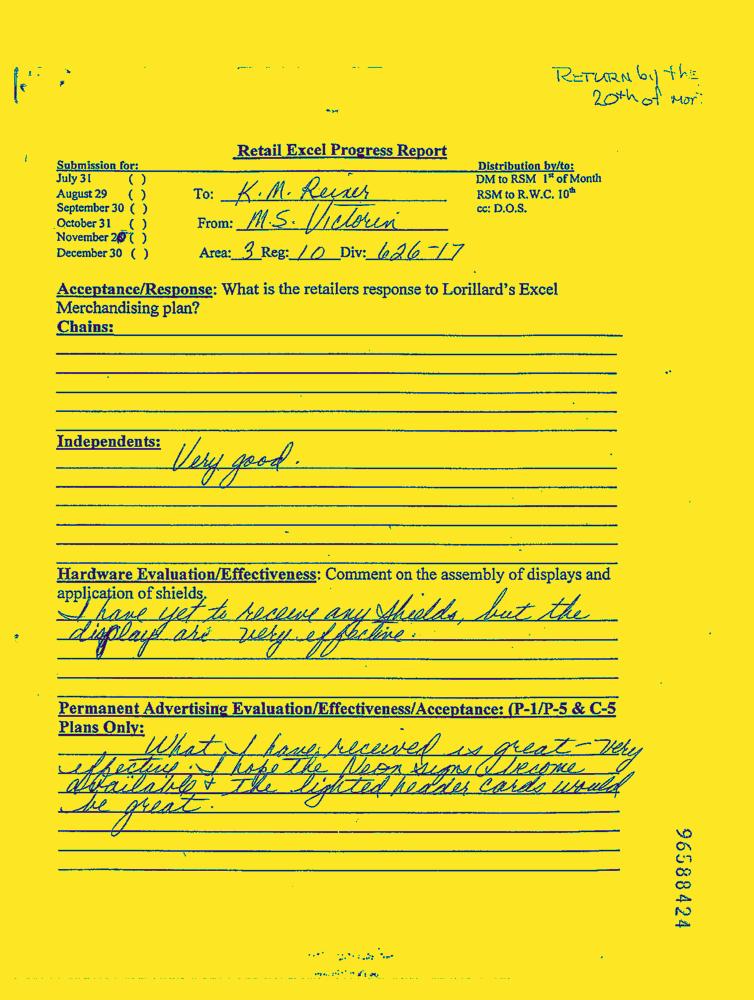 RETURN by the
20th of Mor.
Retail Excel Progress Report
Submission for:
July 31 ( )
August 29 ( )
September 30 ( )
October 31 ( )
November 20 ( )
December 30 ( )
To: K.M. Reiser
From: M.S. Victorin
Area: 3 Reg: 10 Div: 626-17
Distribution by/to:
DM to RSM 1st of Month
RSM to R.W.C. 10th
cc: D.O.S.
Acceptance/Response: What is the retailers response to Lorillard's Excel
Merchandising plan?
Chains:
Independents: Very good.
Hardware Evaluation/Effectiveness: Comment on the assembly of displays and
application of shields.
I have yet to receive any shields, but the
displays are very effective.
Permanent Advertising Evaluation/Effectiveness/Acceptance: (P-1/P-5 & C-5
Plans Only:
What I have received is great - very
effective. I hope the Neon signs become
available & the lighted header cards would
be great.
96588424